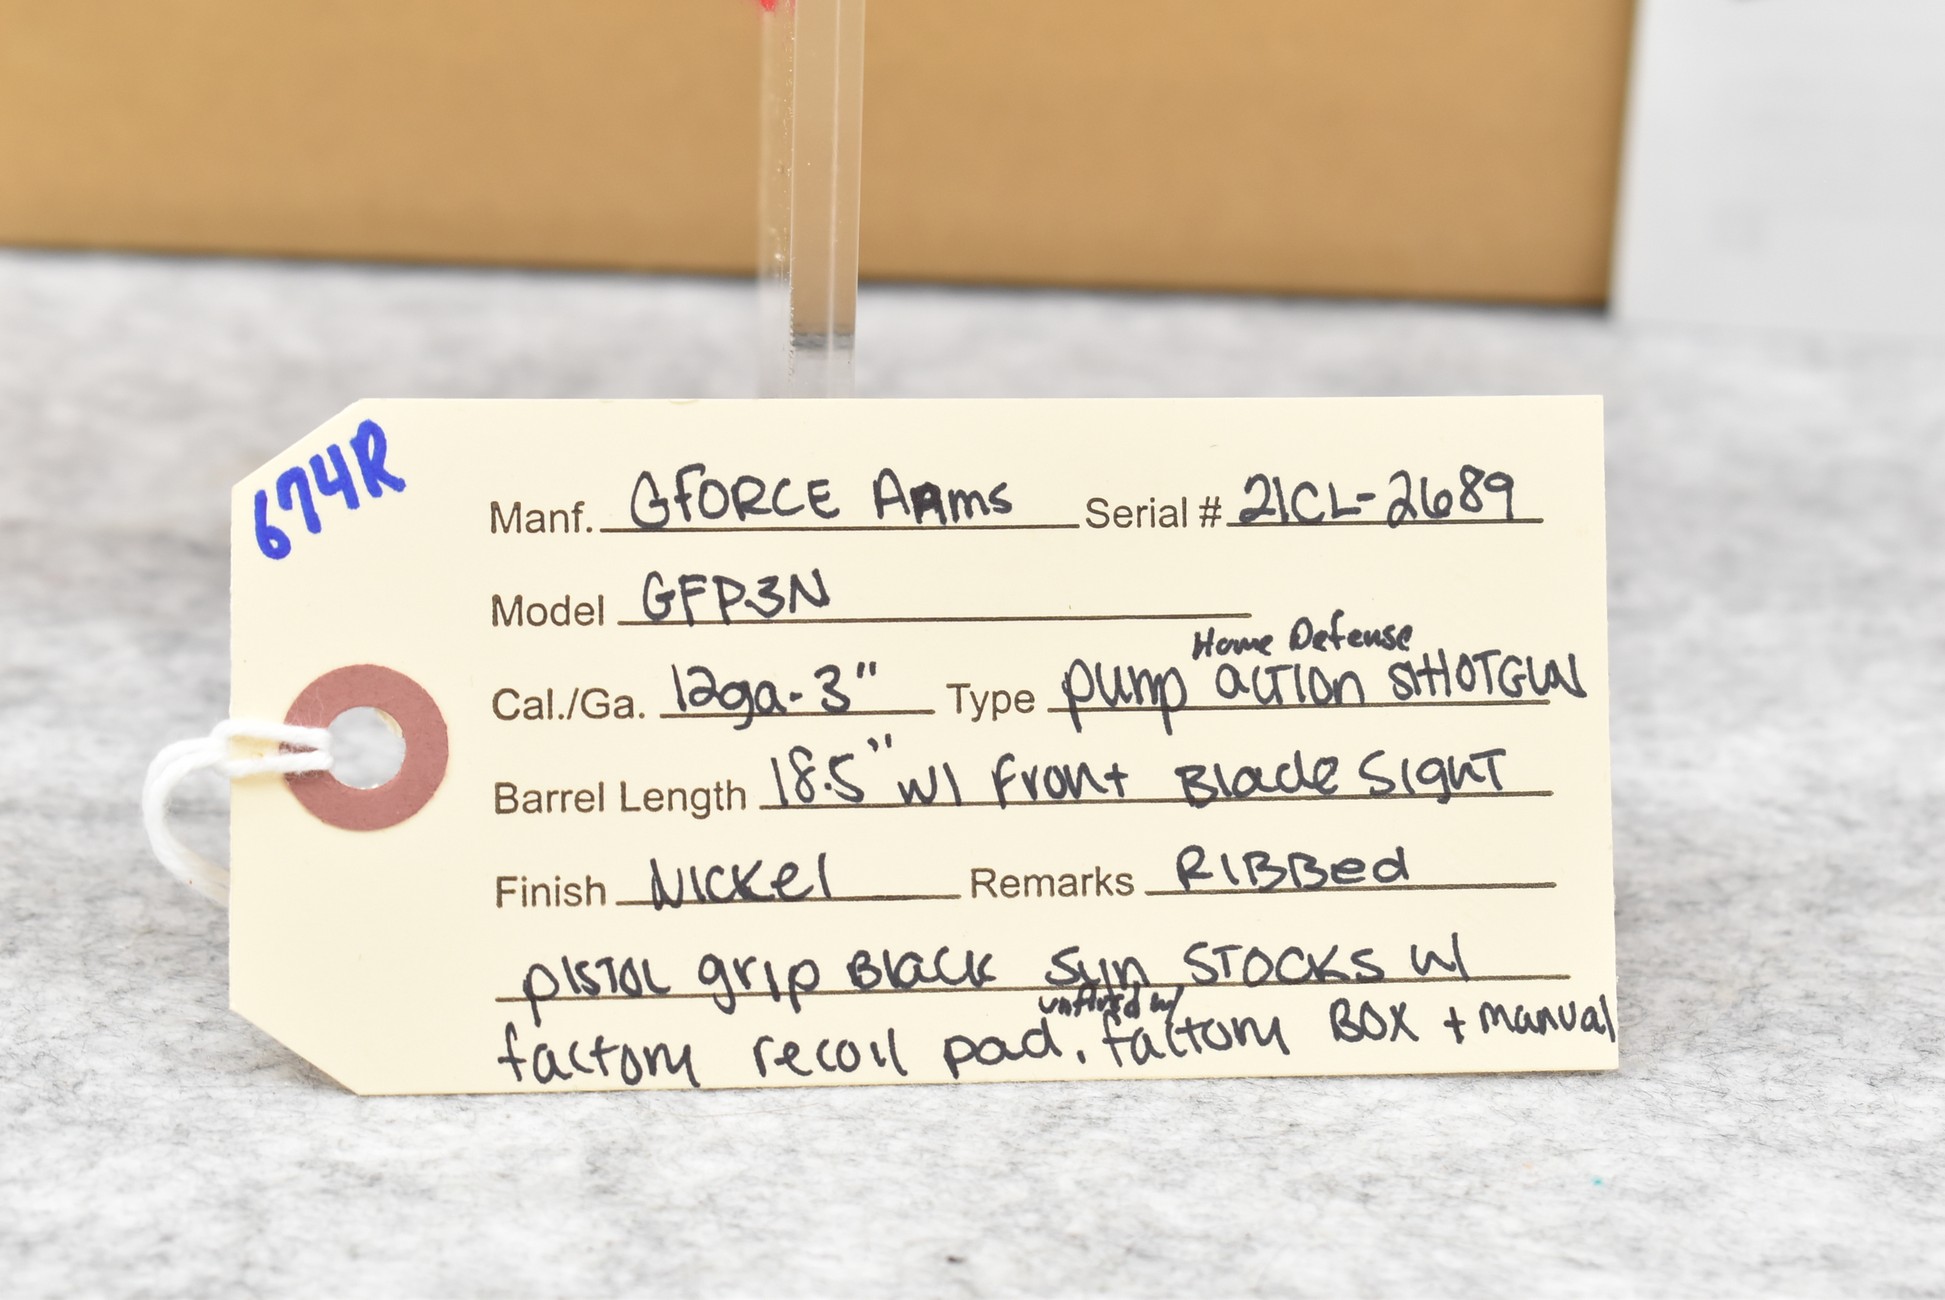 674R
Manf. GFORCE ARms Serial # 21CL-2689
Model GFP3N
Home Defense
Cal./Ga. 12ga-3" Type pump action SHOTGUN
Barrel Length 18.5" w/ Front Blade Sight
Finish Nickel Remarks RIBBed
pistol grip Black Syn STOCKS w/
unfired w/
factory recoil pad. factory BOX + manual